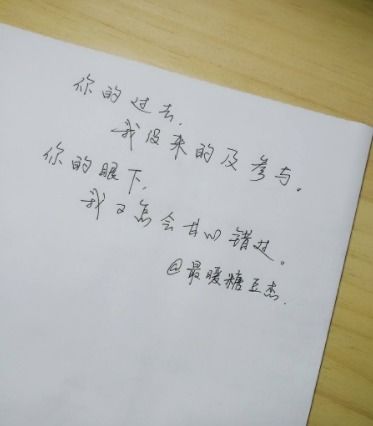 你的过去，
我没来的及参与。
你的眼下，
我又怎会甘心错过。
@最暖糖豆杰.